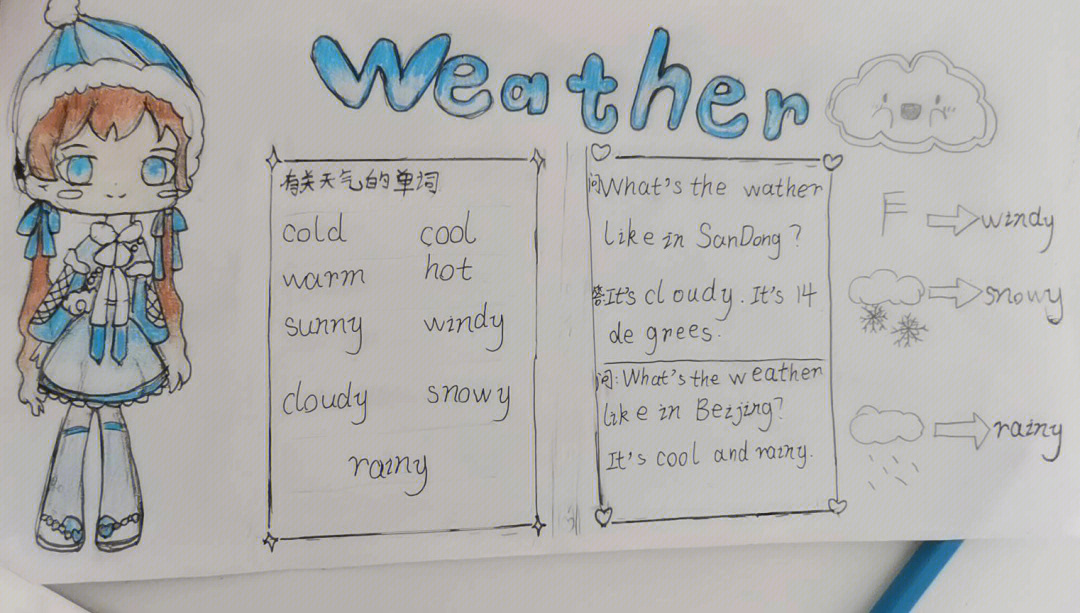 Weather
有关天气的单词
cold cool
warm hot
sunny windy
cloudy snowy
rainy
问What's the wather
like in SanDong?
答:It's cloudy. It's 14
de grees.
问:What's the weather
like in Beijing?
It's cool and rainy.
windy
snowy
rainy